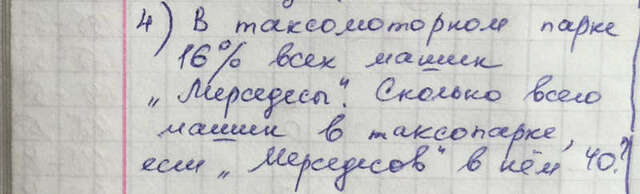 4) В таксомоторном парке
16% всех машин
„Мерседесы". Сколько всего
машин в таксопарке,
если „Мерседесов" в нём 40?